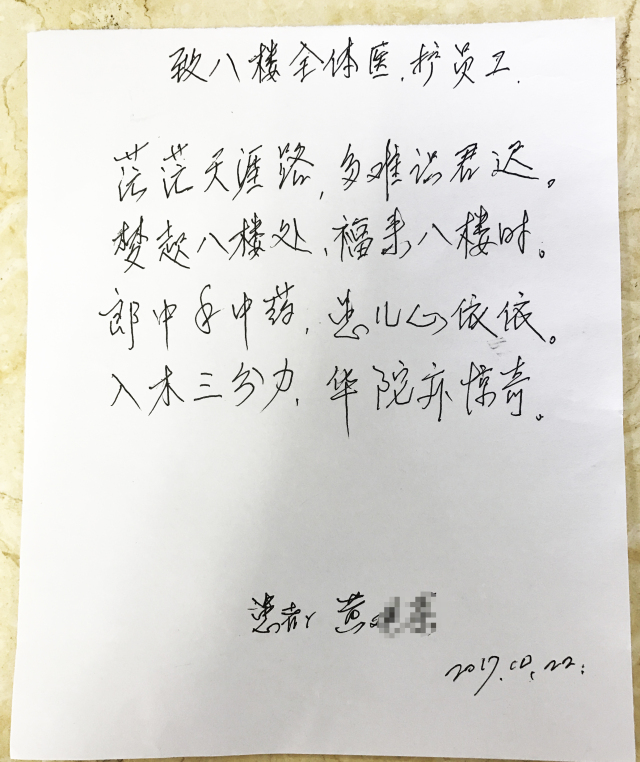 致八楼全体医、护员工.
茫茫天涯路,多难识君迟。
梦起八楼处,福来八楼时。
郎中手中药,患儿心依依。
入木三分力,华院亦惊奇。
患者 黄
2017.10.22.